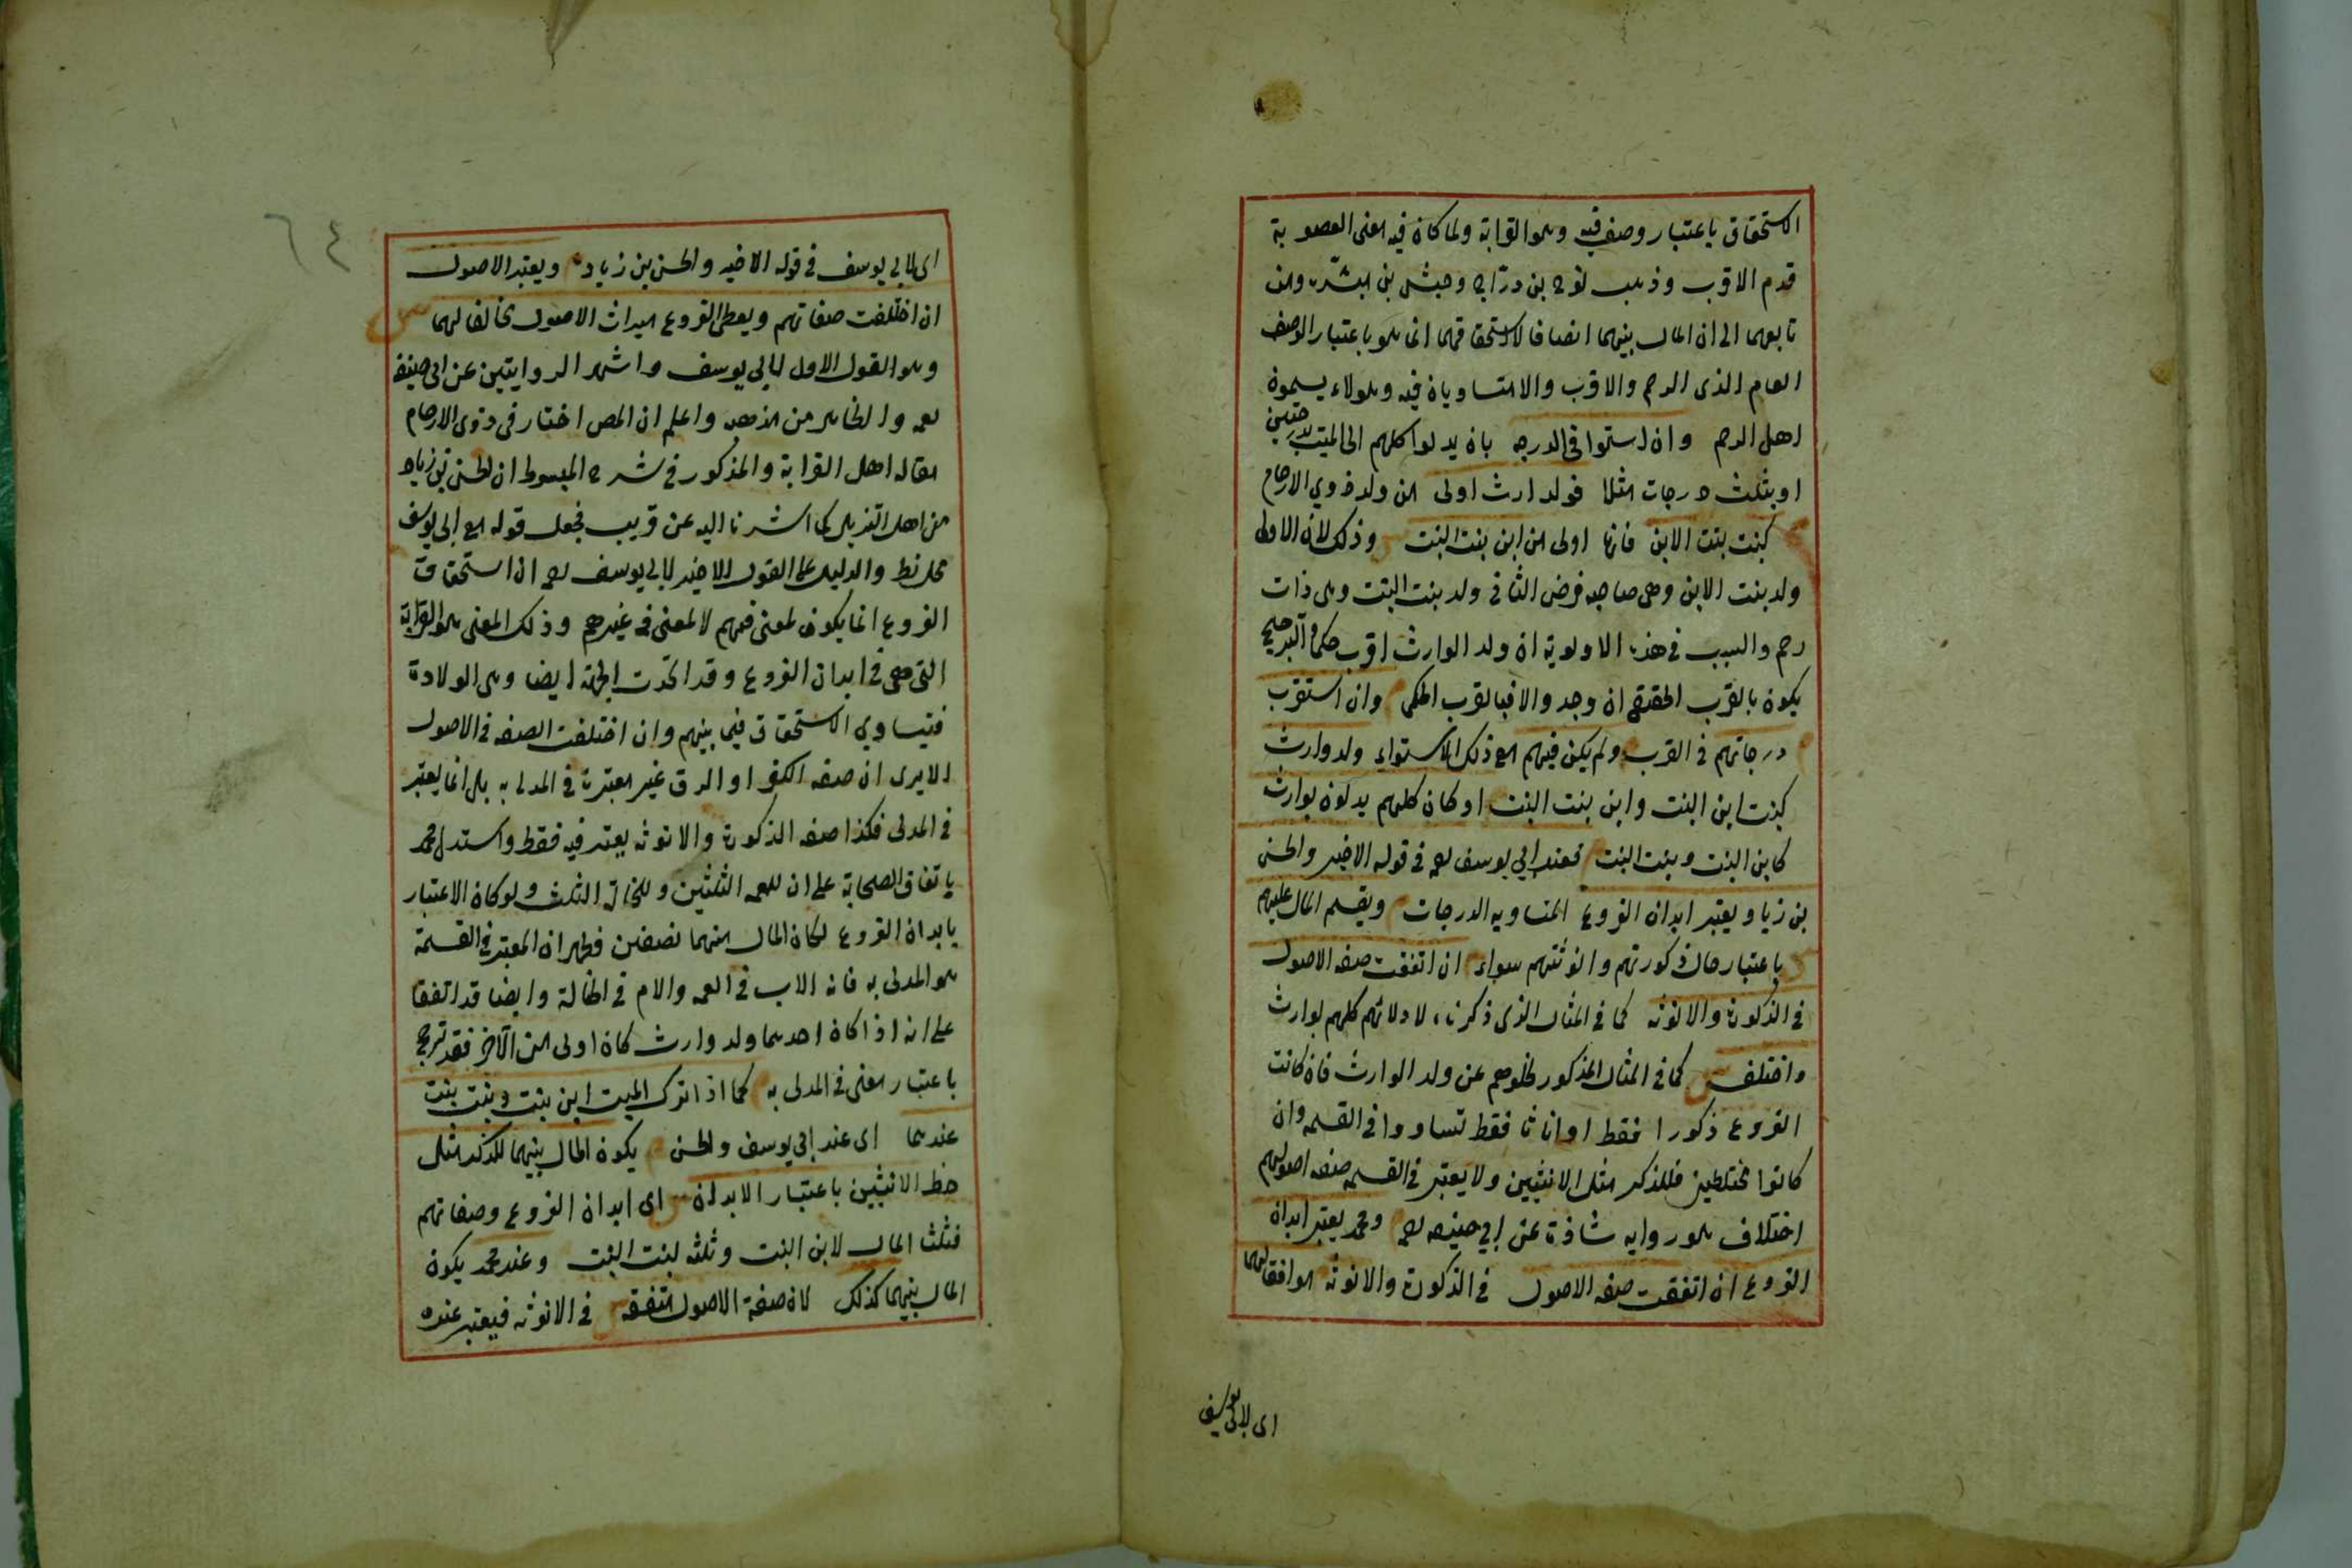 الاستحقاق باعتبار وصف فيه وهو القرابة ولما كان فيه معنى العصوبة
قدم الاقرب وذهب نوح بن درّاج وحبيش بن مبشّر ومن
تابعهما الى ان المال بينهما انصافا لاستحقاقهما انما هو باعتبار الوصف
العام الذى الرحم والاقرب والا متساويان فيه وهولاء يسمون
اهل الرحم وان استووا فى الدرجه بان يدلوا كلهم الى الميت بدرجتين
او بثلث درجات مثلا فولد وارث اولى من ولد ذوي الارحام
كبنت بنت الابن فانها اولى من ابن بنت البنت وذلك لان الاولى
ولد بنت الابن وهى صاحبه فرض الثانى ولد بنت البنت وهى ذات
رحم والسبب فى هذه الاولوية ان ولد الوارث اقرب حكما والترجيح
يكون بالقرب الحقيقى ان وجد والا فبالقرب الحكمى وان استوت
درجاتهم فى القرب ولم يكن فيهم مع ذلك الاستواء ولد وارث
كبنت ابن البنت وابن بنت البنت او كان كلهم يدلون بوارث
كابن البنت وبنت البنت فعند ابي يوسف رحمه فى قوله الاخير والحسن
بن زياد يعتبر ابدان الفروع المتساويه الدرجات ويقسم المال عليهم
باعتبار حال ذكورتهم وانوثتهم سواء ان اتفقت صفه الاصول
فى الذكورة والانوثه كما فى المثال الذى ذكرناه لادلائهم كلهم بوارث
واختلفت كما فى المثال المذكور لخلوهم عن ولد الوارث فان كانت
الفروع ذكورا فقط او اناثا فقط تساووا فى القسمه وان
كانوا مختلطين فللذكر مثل الانثيين ولا يعتبر فى القسمه صفه اصولهم
اختلاف هو روايه شاذة عن ابي حنيفه رحمه ومحمد يعتبر ابدان
الفروع ان اتفقت صفه الاصول فى الذكورة والانوثه موافقا لهما
اى لابى يوسف
٦٤
اى لابي يوسف فى قوله الاخير والحسن بن زياد ويعتبر الاصول
ان اختلفت صفاتهم ويعطى الفروع ميراث الاصول مخالفا لهما
وهو القول الاول لابي يوسف واشهر الروايتين عن ابى حنيفه
رحمه والظاهر من مذهبه واعلم ان المص اختار فى ذوى الارحام
مقاله اهل القرابة والمذكور فى شرح المبسوط ان الحسن بن زياد
من اهل التنزيل كما اشرنا اليه عن قريب فجعل قوله مع ابى يوسف
محل نظر والدليل على القول الاخير لابي يوسف رحمه ان استحقاق
الفروع انما يكون لمعنى فيهم لا لمعنى فى غيرهم وذلك المعنى هو القرابة
التى هى فى ابدان الفروع وقد اتحدت الجهة ايضا وهى الولادة
فتيساوي الاستحقاق فيما بينهم وان اختلفت الصفه فى الاصول
الا يرى ان صفه الكفر او الرق غير معتبرة فى المدلى به بل انما يعتبر
فى المدلى فكذا صفه الذكورة والانوثه يعتبر فيه فقط واستدل محمد
باتفاق الصحابة على ان للعمه الثلثين وللخالة الثلث ولو كان الاعتبار
بابدان الفروع لكان المال بينهما نصفين فظهر ان المعتبر فى القسمة
هو المدلى به فانه الاب فى العمه والام فى الخالة وايضا قد اتفقا
على انه اذا كان احدهما ولد وارث كان اولى من الآخر فقد ترجح
باعتبار معنى فى المدلى به كما اذا ترك الميت ابن بنت وبنت بنت
عندهما اى عند ابي يوسف والحسن يكون المال بينهما للذكر مثل
حظ الانثيين باعتبار الابدان اى ابدان الفروع وصفاتهم
فثلثا المال لابن البنت وثلثه لبنت البنت وعند محمد يكون
المال بينهما كذلك لان صفة الاصول متفقه فى الانوثه فيعتبر عنده